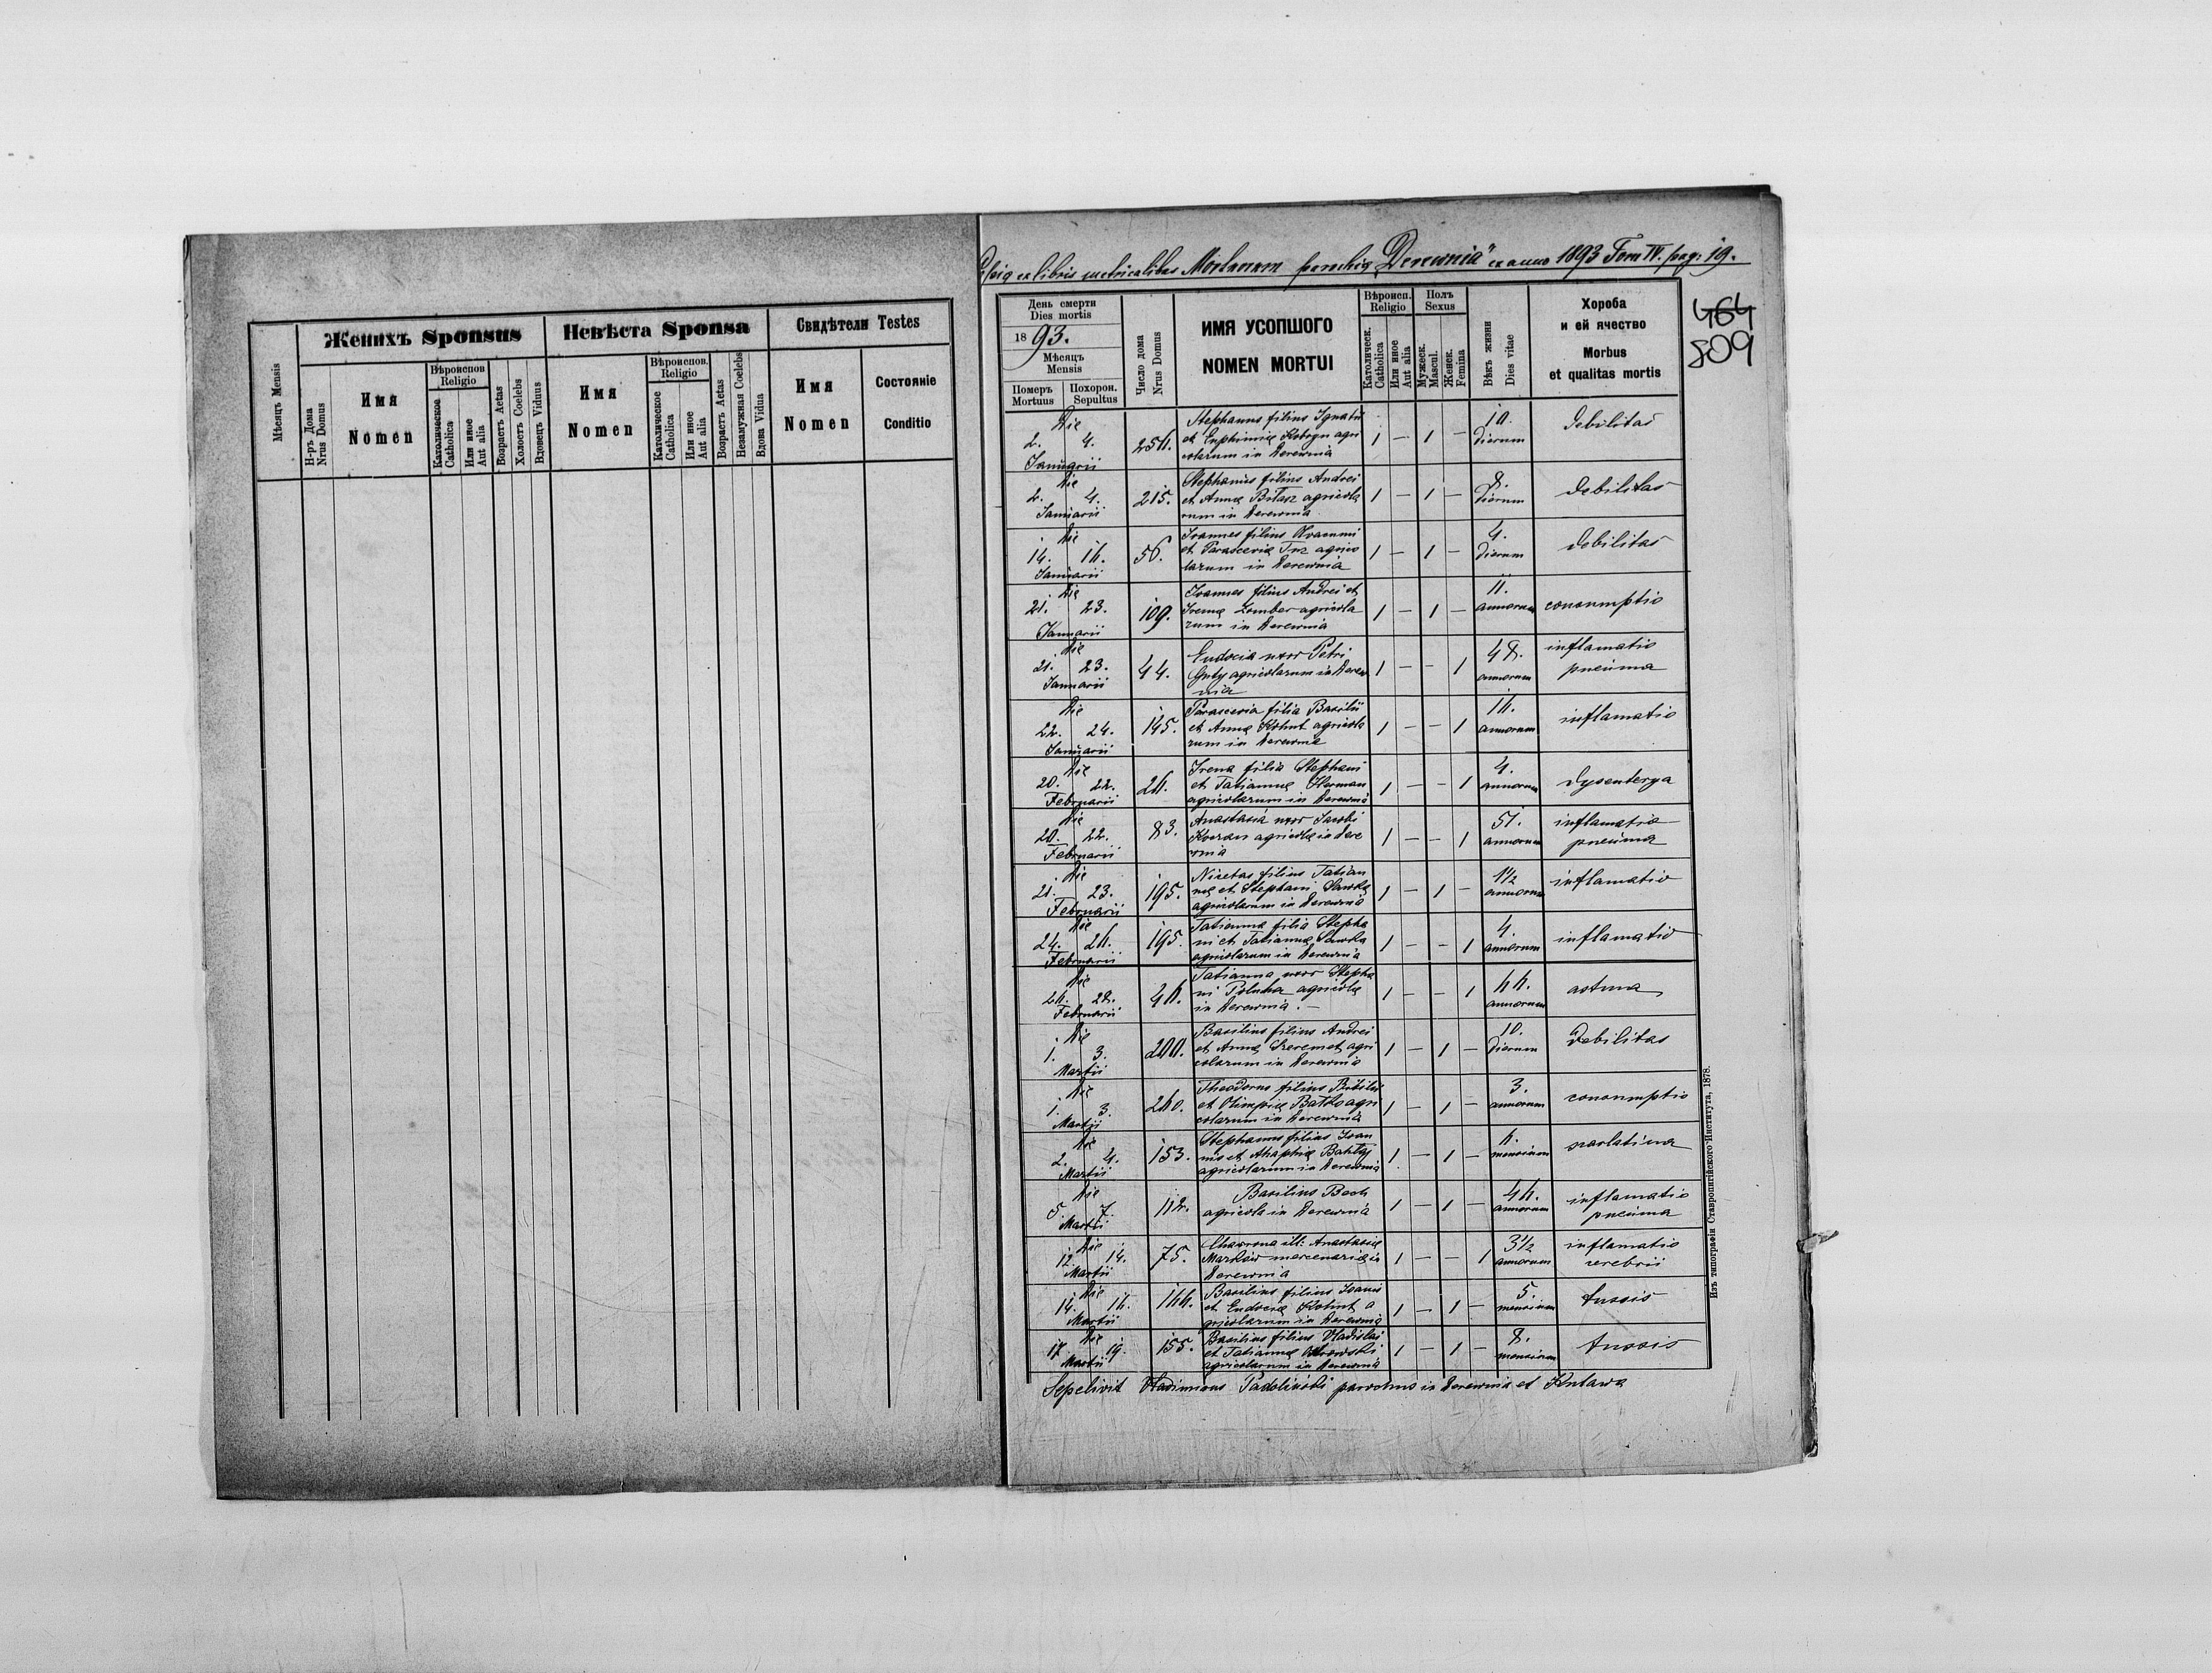 Мѣсяцъ Mensis
Женихъ Sponsus
Невѣста Sponsa
Свидѣтели Testes
Н-ръ Дома
Nrus Domus
Имя
Nomen
Вѣроиспов
Religio
Католическое
Catholica
Или иное
Aut alia
Возрастъ Aetas
Холостъ Coelebs
Вдовецъ Viduus
Имя
Nomen
Вѣроиспов.
Religio
Католическое
Catholica
Или иное
Aut alia
Возрастъ Aetas
Незамужная Coelebs
Вдова Vidua
Имя
Nomen
Состояніе
Conditio
ex libris metricalibus Mortuorum parochię "Derewnia" ex anno 1893 Tom IV. pag: 19.
464
809
День смерти
Dies mortis
1893.
Мѣсяцъ
Mensis
Померъ
Mortuus
Похорон.
Sepultus
Число дома
Nrus Domus
ИМЯ УСОПШОГО
NOMEN MORTUI
Вѣроисп.
Religio
Католическ.
Catholica
Или иное
Aut alia
Полъ
Sexus
Мужеск.
Mascul.
Женск.
Femina
Вѣкъ жизни
Dies vitae
Хороба
и ей ячество
Morbus
et qualitas mortis
Die
2. 4.
Januarii
256.
Stephanus filius Ignatii
et Euphimię agri
colarum in Derewnia
1 — 1 —
10.
dierum
debilitas
Die
2. 4.
Januarii
215.
Stephanus filius Andrei
et Annę Bilasz agricola
rum in Derewnia
1 — 1 —
8.
dierum
debilitas
Die
14. 16.
Januarii
56.
Joannes filius
et Parascevię agrico
larum in Derewnia
1 — 1 —
4.
dierum
debilitas
Die
21. 23.
Januarii
109.
Joannes filius Andrei et
Irenę Zomber agricola
rum in Derewnia
1 — 1 —
11.
annorum
consumptio
Die
21. 23.
Januarii
44.
Eudocia uxor Petri
Guty agricolarum in Derew
nia
1 — — 1
48.
annorum
inflamatio
pneuma
Die
22. 24.
Januarii
145.
Parascevia filia Basilii
et Annę Kohut agricola
rum in Derewnia
1 — — 1
16.
annorum
inflamatio
Die
20. 22.
Februarii
26.
Irena filia Stephani
et Tatiannę Herman
agricolarum in Derewnia
1 — — 1
4.
annorum
dysenterya
Die
20. 22.
Februarii
83.
Anastasia uxor Jacobi
agricolę in Dere
wnia
1 — — 1
51.
annorum
inflamatio
pneuma
Die
21. 23.
Februarii
195.
Nicetas filius Tatian
nę et Stephani Sawka
agricolarum in Derewnia
1 — 1 —
1½
annorum
inflamatio
Die
24. 26.
Februarii
195.
Tatianna filia Stepha
ni et Tatiannę Sawka
agricolarum in Derewnia
1 — — 1
4.
annorum
inflamatio
Die
26. 28.
Februarii
46.
Tatianna uxor Stepha
ni agricolę
in Derewnia. —
1 — — 1
66.
annorum
astma
Die
1. 3.
Martii
200.
Basilius filius Andrei
et Annę Szeremet agri
colarum in Derewnia
1 — 1 —
10.
dierum
debilitas
Die
1. 3.
Martii
260.
Theodorus filius Basilii
et Olimpię agri
colarum in Derewnia
1 — 1 —
3.
annorum
consumptio
Die
2. 4.
Martii
153.
Stephanus filius Joan
nis et Ahaphię
agricolarum in Derewnia
1 — 1 —
6.
mensium
scarlatina
Die
5 7.
Martii
112.
Basilius Boch
agricola in Derewnia
1 — 1 —
46.
annorum
inflamatio
pneuma
Die
12 14.
Martii
75.
ill: Anastasię
Markow mercenarię in
Derewnia
1 — — 1
3½
annorum
inflamatio
cerebrii
Die
14. 16.
Martii
166.
Basilius filius Joanis
et Eudocię Kohut a
gricolarum in Derewnia
1 — 1 —
5.
mensium
tussis
Die
17 19.
Martii
155.
Basilius filius Vladislai
et Tatiannę
agricolarum in Derewnia
1 — 1 —
8.
mensium
tussis
Sepelivit Vladimirus Padoliński parochus in Derewnia et Kulawa
Изъ типографіи Ставропигійского Института, 1878.